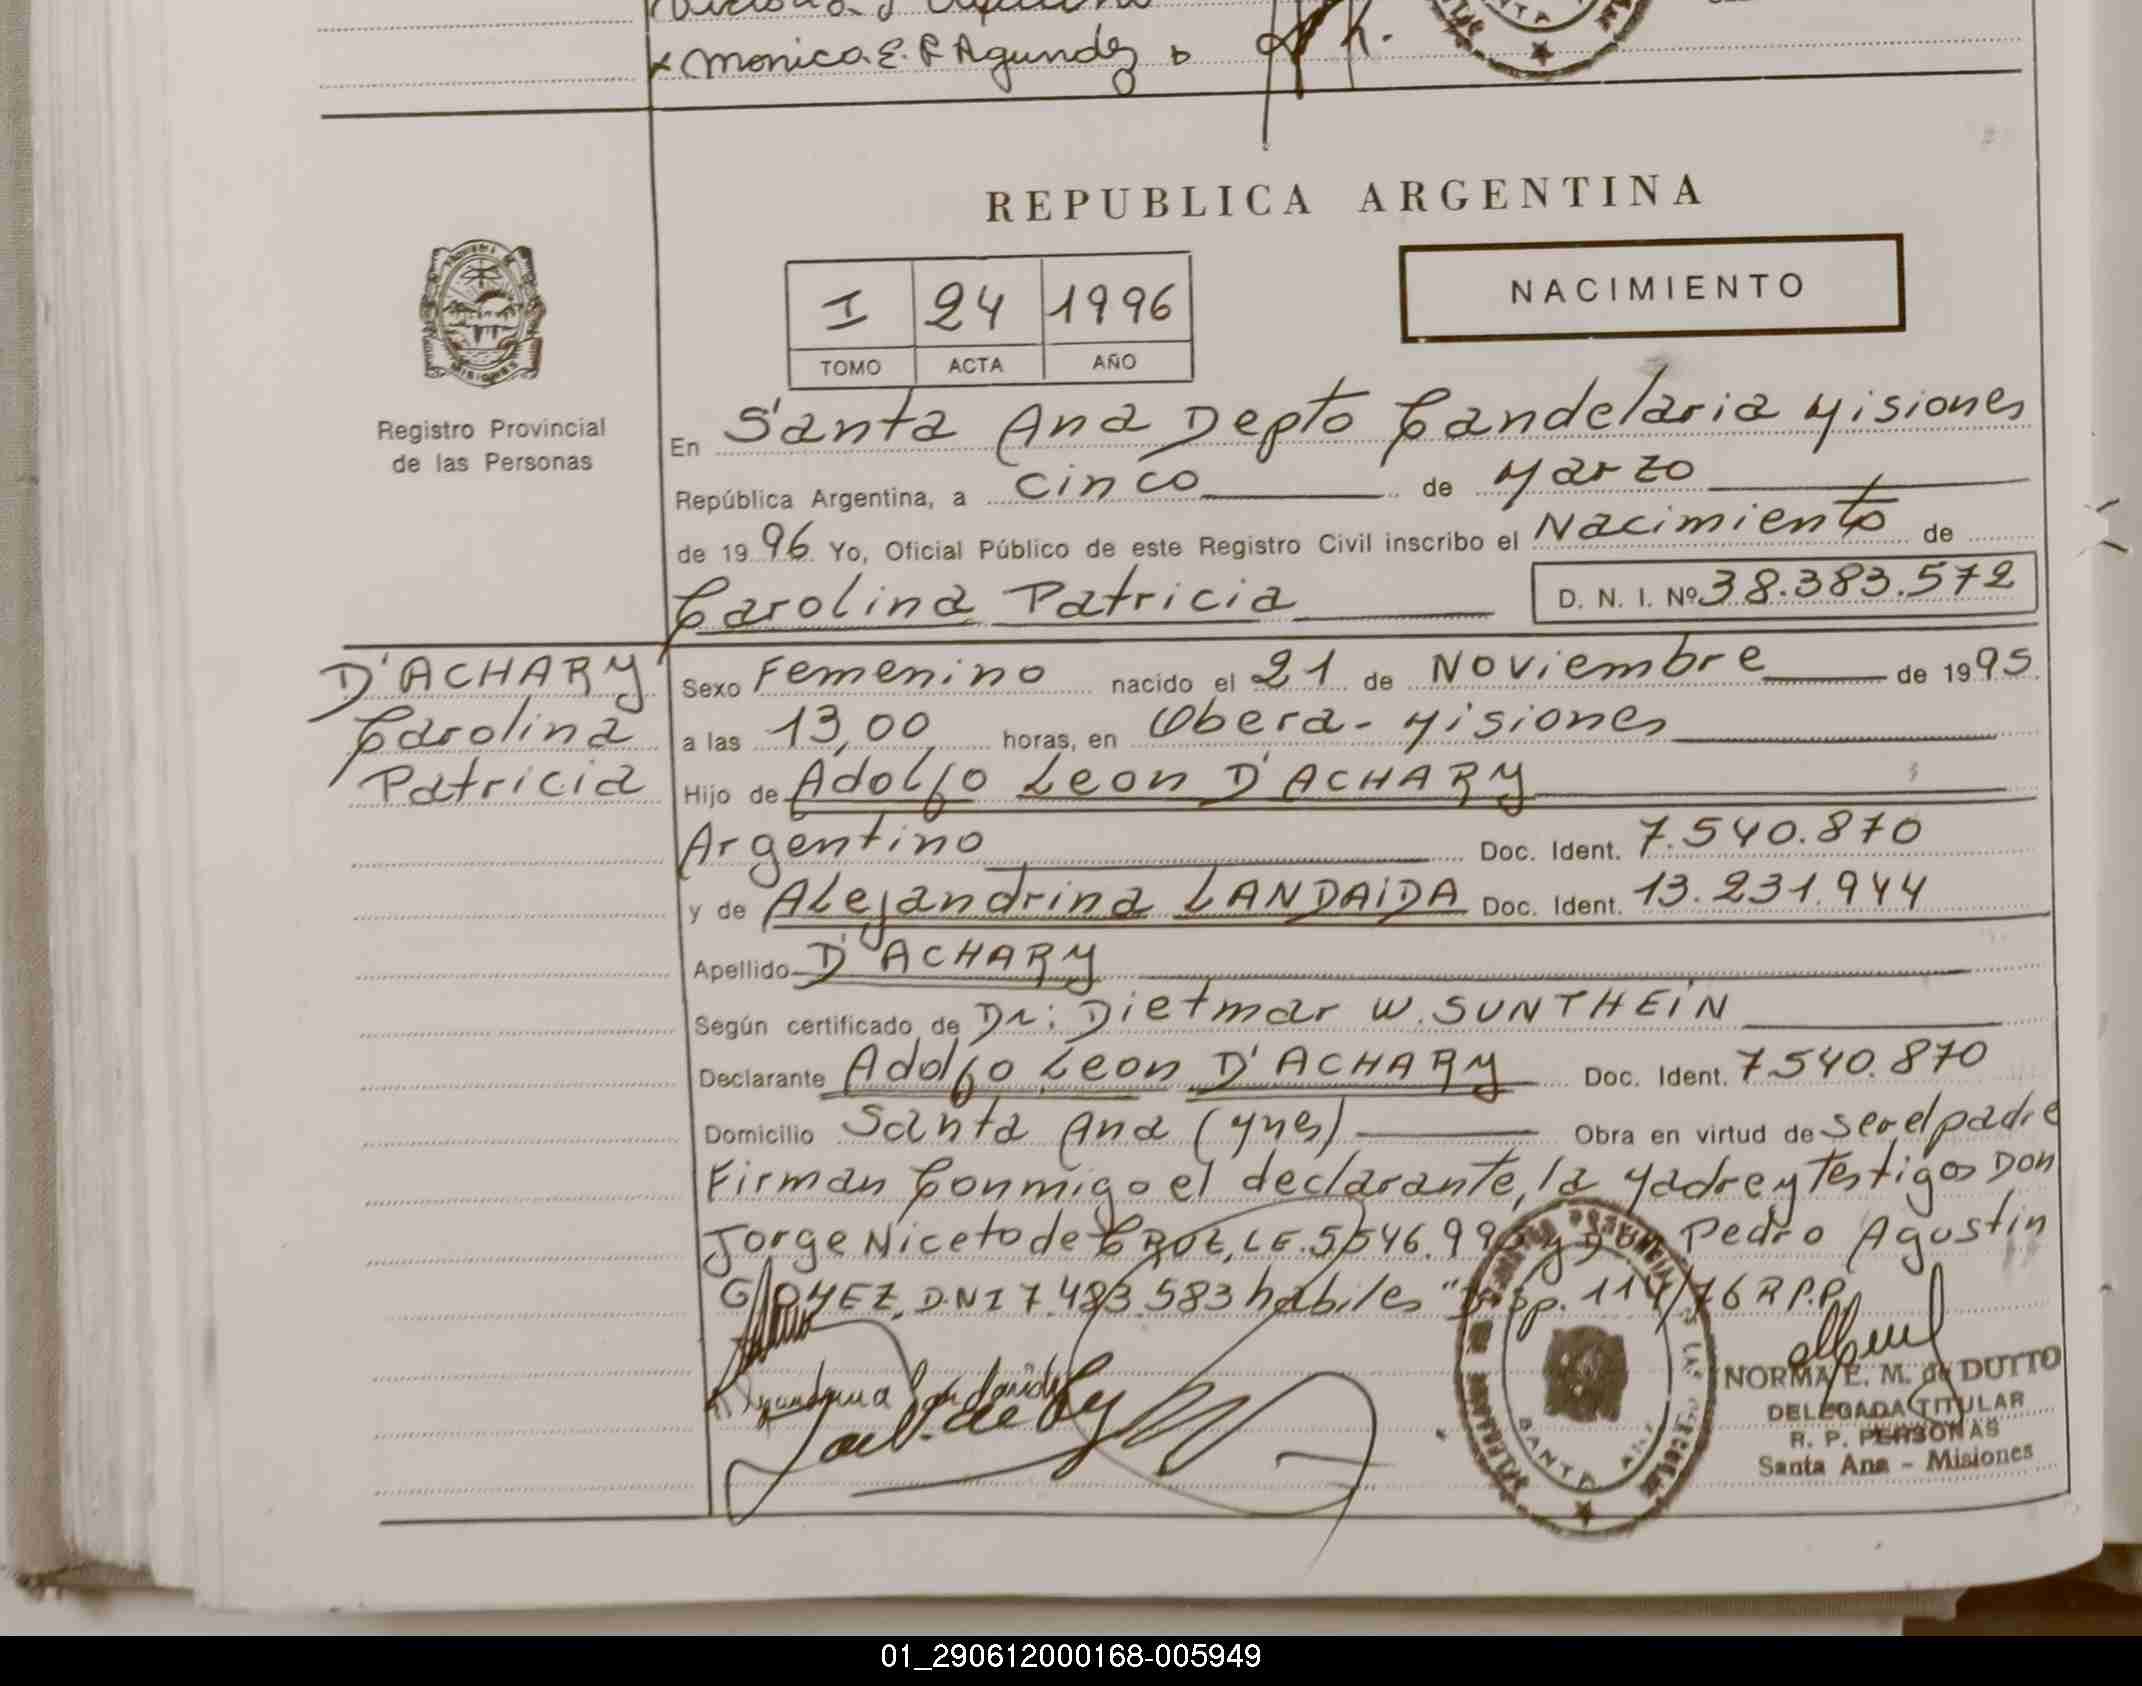 x Monica E. R Agundez
REPUBLICA ARGENTINA
NACIMIENTO
I 24 1996
TOMO ACTA AÑO
MISIONES
Registro Provincial
de las Personas
En Santa Ana Depto Candelaria Misiones
República Argentina, a cinco de Marzo
de 1996 Yo, Oficial Público de este Registro Civil inscribo el Nacimiento de
Carolina Patricia D. N. I. Nº 38.383.572
D'ACHARY
Carolina
Patricia
Sexo Femenino nacido el 21 de Noviembre de 1995
a las 13,00 horas, en Obera - Misiones
Hijo de Adolfo Leon D'ACHARY
Argentino Doc. Ident. 7.540.870
y de Alejandrina LANDAIDA Doc. Ident. 13.231.944
Apellido D'ACHARY
Según certificado de Dr: Dietmar W. SUNTHEIN
Declarante Adolfo Leon D'ACHARY Doc. Ident. 7.540.870
Domicilio Santa Ana (Mnes) Obra en virtud de ser el padre
Firman Conmigo el declarante, la Madre y Testigos Don
Jorge Niceto de CRUZ, LE. 5.546.99 y Don Pedro Agustin
GOMEZ, DNI 7.483.583 habiles "Disp. 114/76 R.P.P.
NORMA E. M. de DUTTO
DELEGADA TITULAR
R. P. PERSONAS
Santa Ana - Misiones
SANTA ANA
01_290612000168-005949